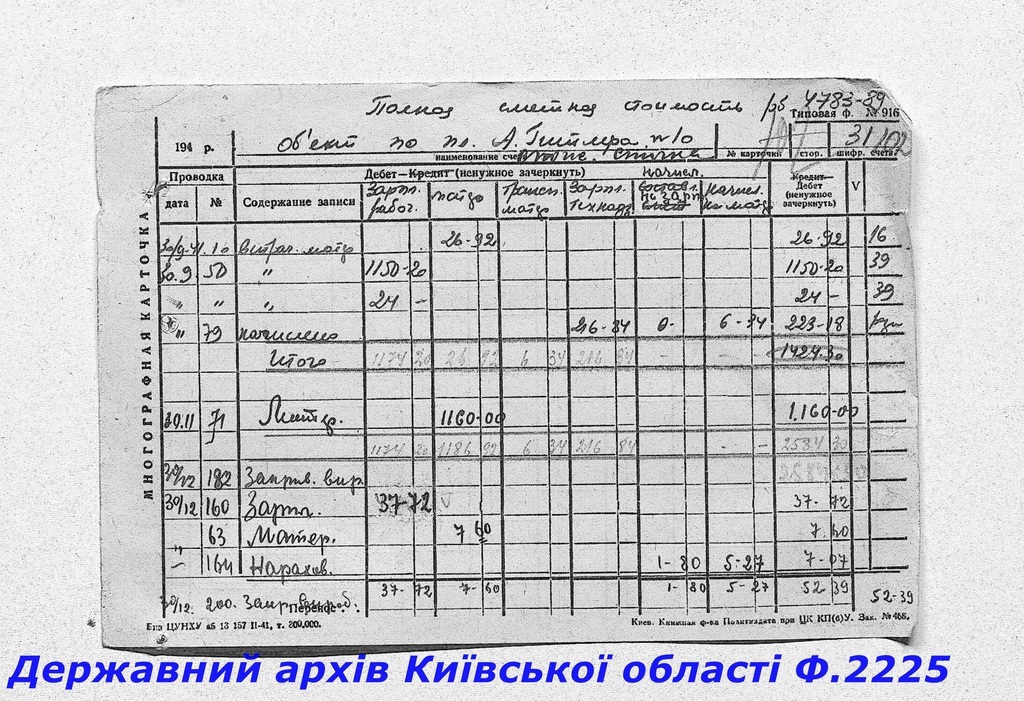 Полная сметная стоимость рб 4783-89
Типовая ф. № 916
194 г.
Об'ект по пл. А. Гитлера
31/102
наименование счета
№ карточки
стор.
шифр. счета
Проводка
Дебет—Кредит (ненужное зачеркнуть)
начисл.
Кредит—Дебет (ненужное зачеркнуть)
V
дата № Содержание записи
Зарпл. рабоч.
Трансп.
Зарпл. технадз.
начисл.
МНОГОГРАФНАЯ КАРТОЧКА
26-92 26-92 16
30.9 50 " 1150-20 1150-20 39
" " " 24 - 24 - 39
" 79 начислено 216-84 0- 6-34 223-18
Итого 1174 20 26 92 6 34 216 84 - - 1424.30
30.11 71 1160-00 1.160-00
1174 20 1186 92 6 34 216 84 - - 2584 30
30/12 182
30/12 160 Зарпл. 37-72 V 37-72
" 63 Матер. 7 60 7.60
164 Нарахов. 1-80 5-27 7-07
37-72 7-60 1-80 5-27 52 39 52-39
30/12. 200.
Перенос:
ЦУНХУ 13 157 11-41, т. 200.000.
Киев. Книжная ф-ка Политиздата при ЦК КП(б)У. Зак. № 468.
Державний архів Київської області Ф.2225